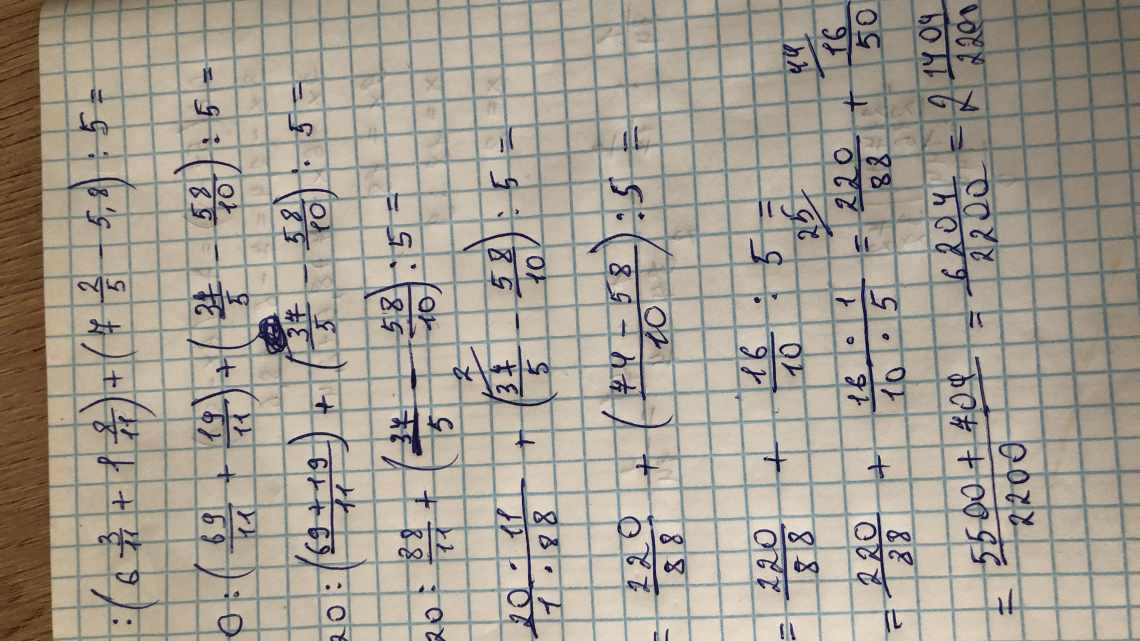 : (6 3/11 + 1 8/11) + (7 2/5 - 5,8) : 5 =
0 : (69/11 + 19/11) + (37/5 - 58/10) : 5 =
20 : (69+19/11) + (37/5 - 58/10) : 5 =
20 : 88/11 + (37/5 - 58/10) : 5 =
20 · 11/1 · 88 + (37/5 - 58/10) : 5 =
2
220/88 + (74 - 58/10) : 5 =
= 220/88 + 16/10 : 5 =
= 220/88 + 16 · 1/10 · 5 = 220/88 + 16/50
25 44
= 5500 + 704/2200 = 6204/2200 = 2 1404/2200